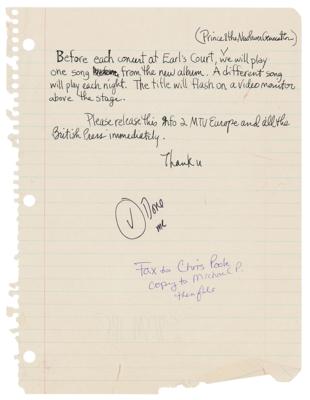 (Prince & the New Power Generation)
Before each concert at Earl's Court, we will play
one song from the new album. A different song
will play each night. The title will flash on a video monitor
above the stage.
Please release this info 2 MTV Europe and all the
British Press immediately.
Thank u
Done
me
Fax to Chris Poole
copy to Michael P.
then file